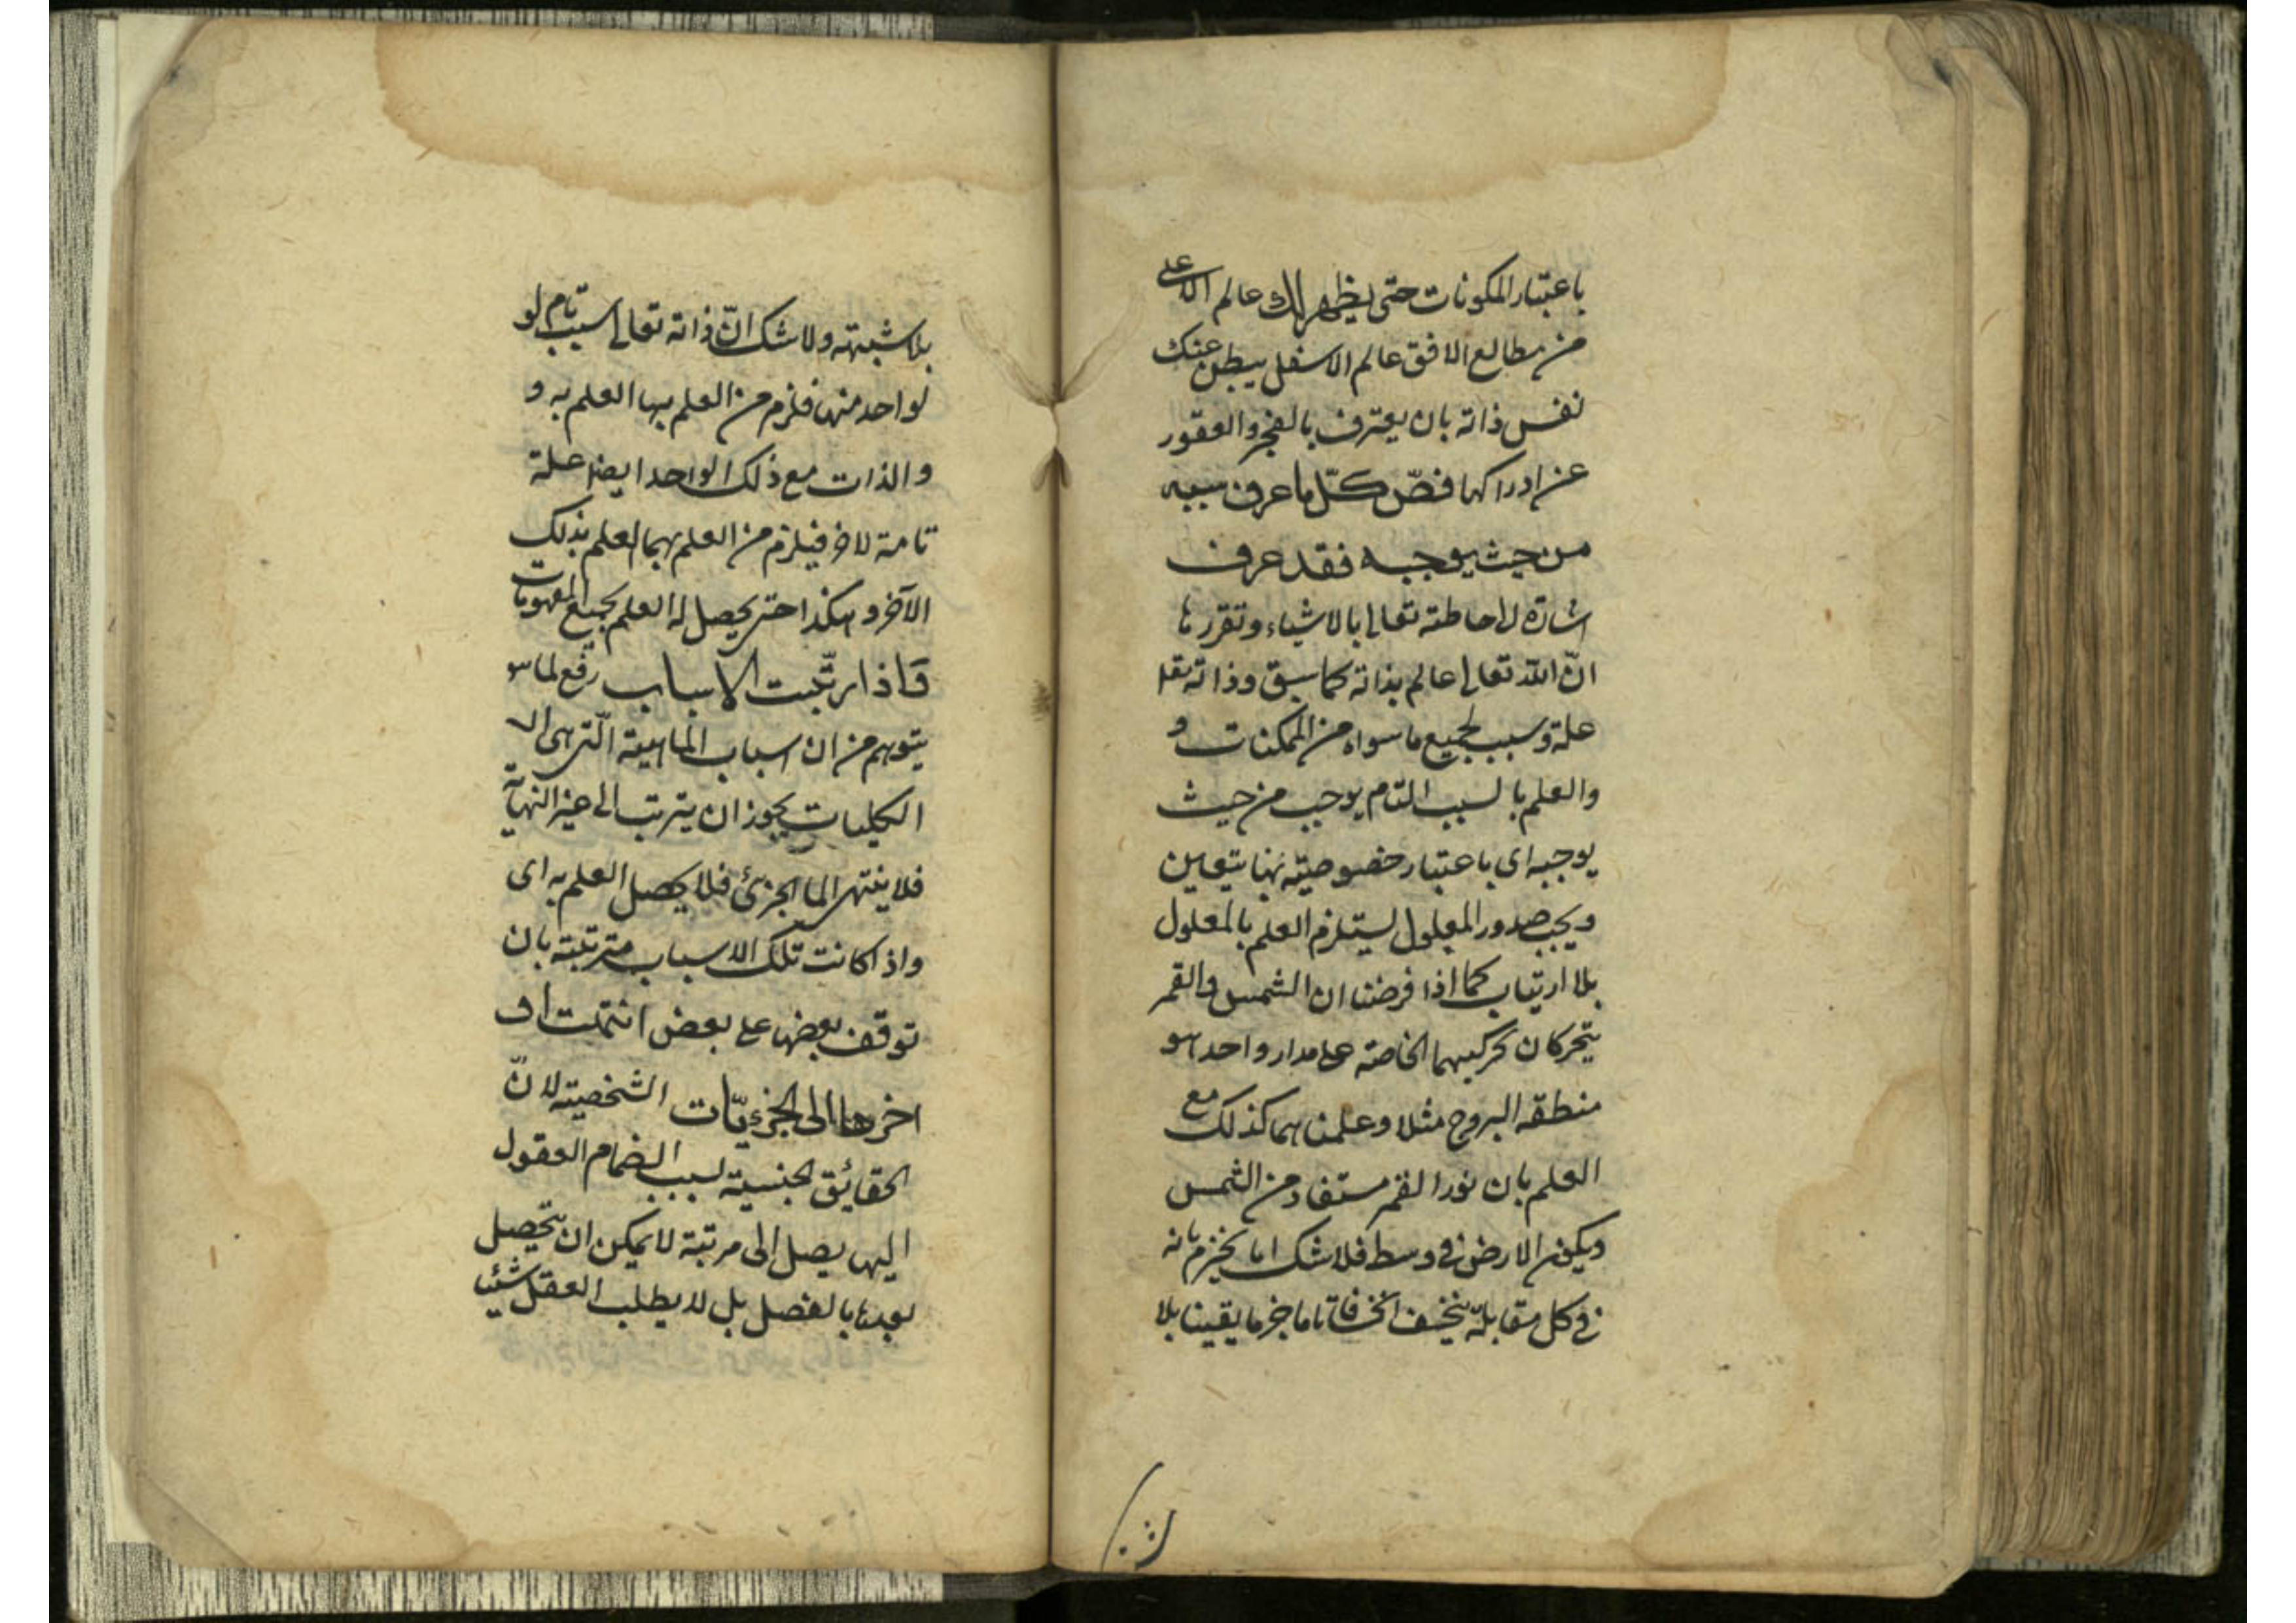 باعتبار المكونات حتى يظهر لك عالم الاعلى
من مطالع الافق عالم الاسفل يبطن عنك
نفس ذاته بان يعترف بالعجز والعقور
عن ادراكها فصّ كلّ ما عرف سببه
من حيث يوجبه فقد عرف
اشارة لاحاطته تعالى بالاشياء وتقررها
انّ الله تعالى عالم بذاته كما سبق وذاته تعا
علة وسبب لجميع ما سواه من الممكنات و
والعلم بالسبب التام يوجب من حيث
يوجبه اى باعتبار خصوصيته بها يتعين
ويجب صدور المعلول ليستلزم العلم بالمعلول
بلا ارتياب كما اذا فرضنا ان الشمس والقمر
يتحركان بحركتيهما الخاصة على مدار واحد هو
منطقه البروج مثلا وعلمناهما كذلك مع
العلم بان نور القمر مستفاد من الشمس
ويكون الارض فى وسط فلا شك انا نجزم بانه
فى كل مقابلة ينخسف انخسافا تاما جزما يقينا بلا
بلا شبهته ولا شك انّ ذاته تعالى سبب تام لو
لواحد منها فلزم من العلم بها العلم به و
والذات مع ذلك الواحد ايضا علة
تامة لاخر فيلزم من العلم بهما العلم بذلك
الآخر وهكذا حتى يحصل له العلم بجميع المفهومات
فاذا رتّبت الاسباب رفع لما سو
يتوهم من ان اسباب الماهية الّتى هى ال
الكليات يجوز ان يترتب الى غير النهاية
فلا ينتهى الى الجزئى فلا يحصل العلم به اى
واذا كانت تلك الاسباب مترتبة بان
توقف بعضها على بعض انتهت او
اخرها الى الجزئيّات الشخصية لانّ
الحقايق الجنسية بسبب انضمام العقول
اليها يصل الى مرتبة لا يمكن ان يتحصل
بعدها بالفصل بل لا يطلب العقل شيئا